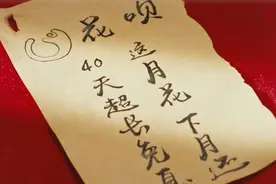 花呗
这月花 下月还
40天超长免息